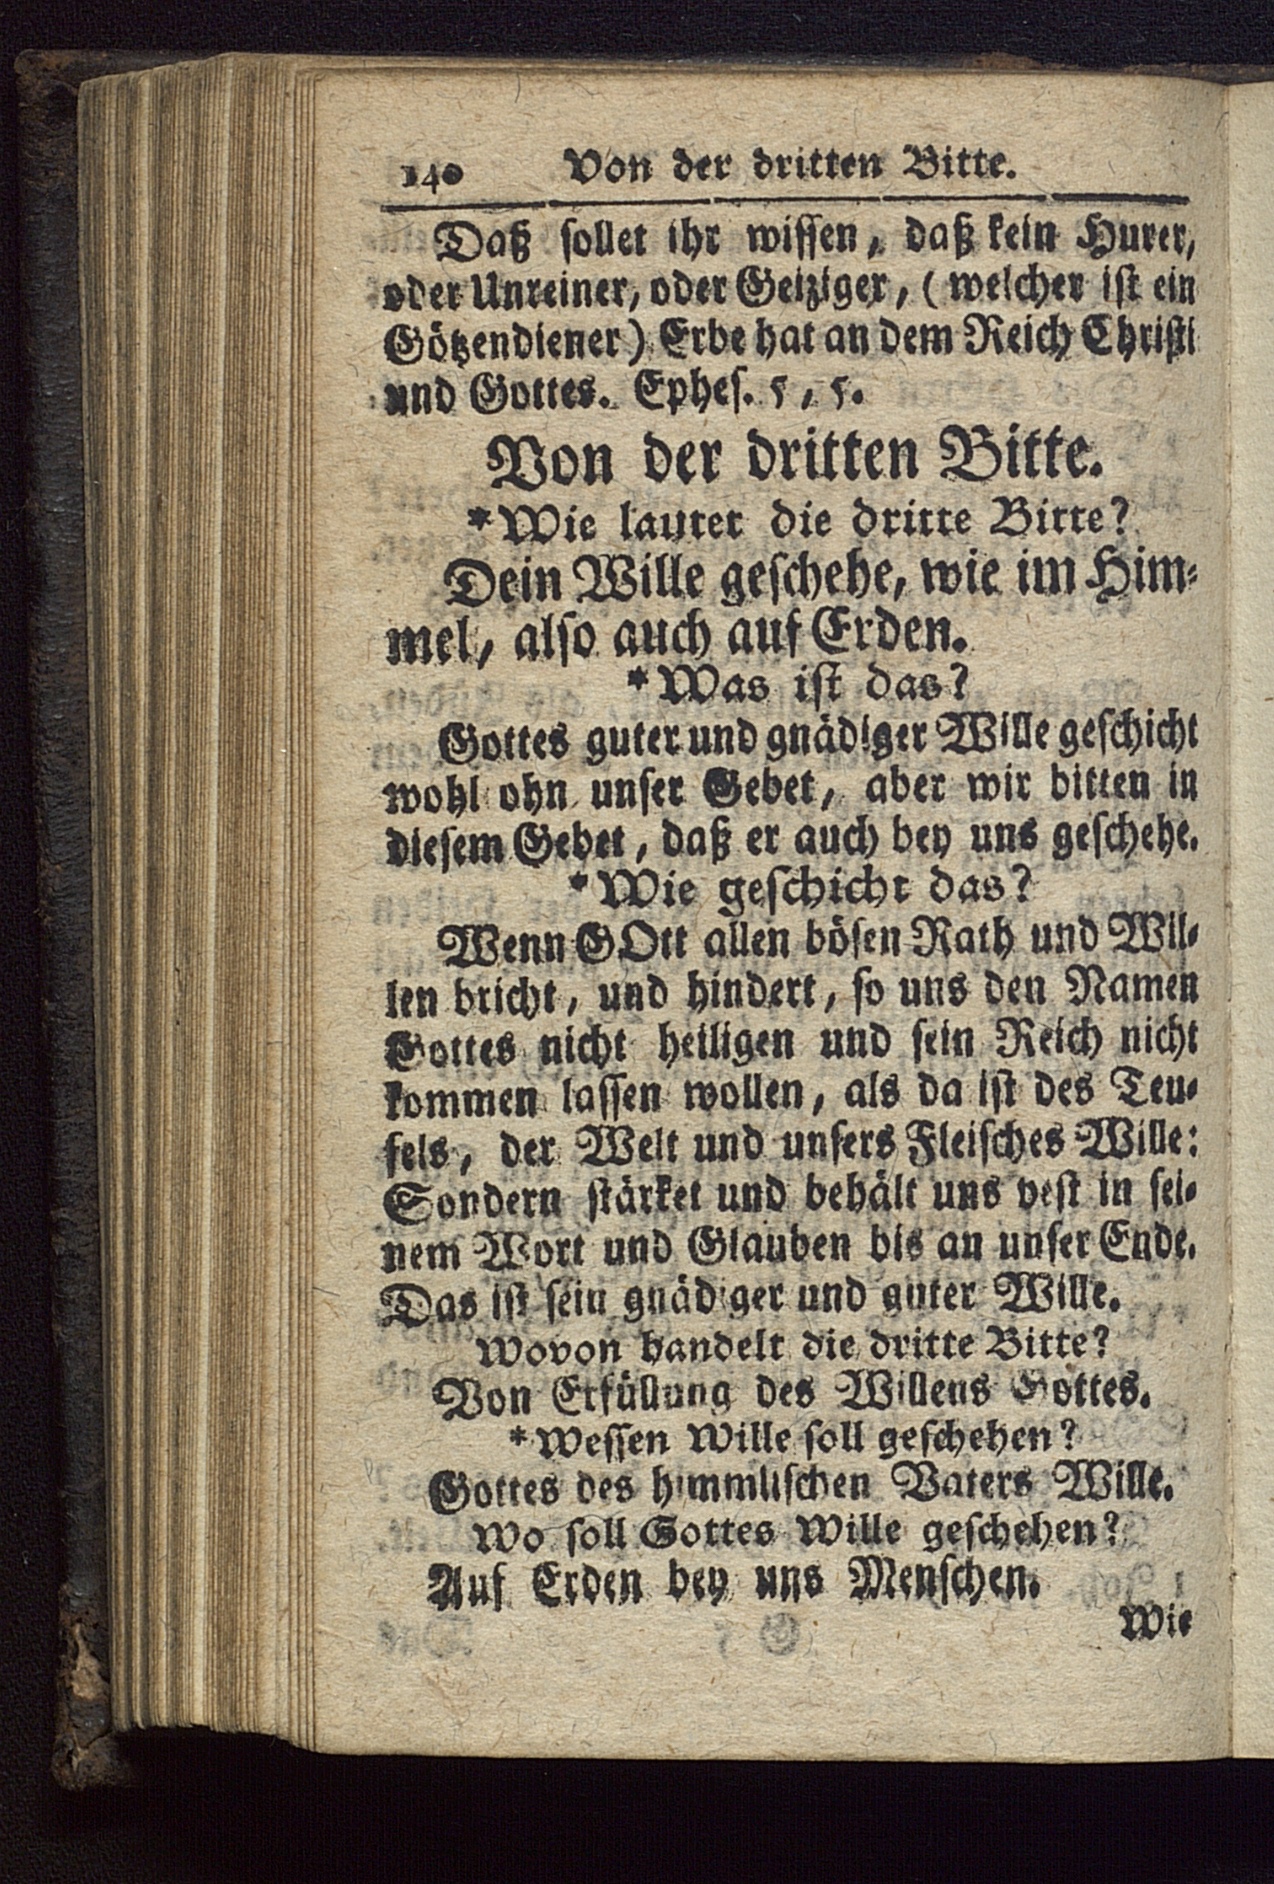 140 Von der dritten Bitte.
Daß sollet ihr wissen, daß kein Hurer,
oder Unreiner, oder Geiziger, (welcher ist ein
Götzendiener) Erbe hat an dem Reich Christi
und Gottes. Ephes. 5, 5.
Von der dritten Bitte.
*Wie lautet die dritte Bitte?
Dein Wille geschehe, wie im Him-
mel, also auch auf Erden.
*Was ist das?
Gottes guter und gnädiger Wille geschicht
wohl ohn unser Gebet, aber wir bitten in
diesem Gebet, daß er auch bey uns geschehe.
*Wie geschicht das?
Wenn GOtt allen bösen Rath und Wil-
len bricht, und hindert, so uns den Namen
Gottes nicht heiligen und sein Reich nicht
kommen lassen wollen, als da ist des Teu-
fels, der Welt und unsers Fleisches Wille:
Sondern stärket und behält uns vest in sei-
nem Wort und Glauben bis an unser Ende.
Das ist sein gnädiger und guter Wille.
Wovon handelt die dritte Bitte?
Von Erfüllung des Willens Gottes.
*Wessen Wille soll geschehen?
Gottes des himmlischen Vaters Wille.
Wo soll Gottes Wille geschehen?
Auf Erden bey uns Menschen.
Wie